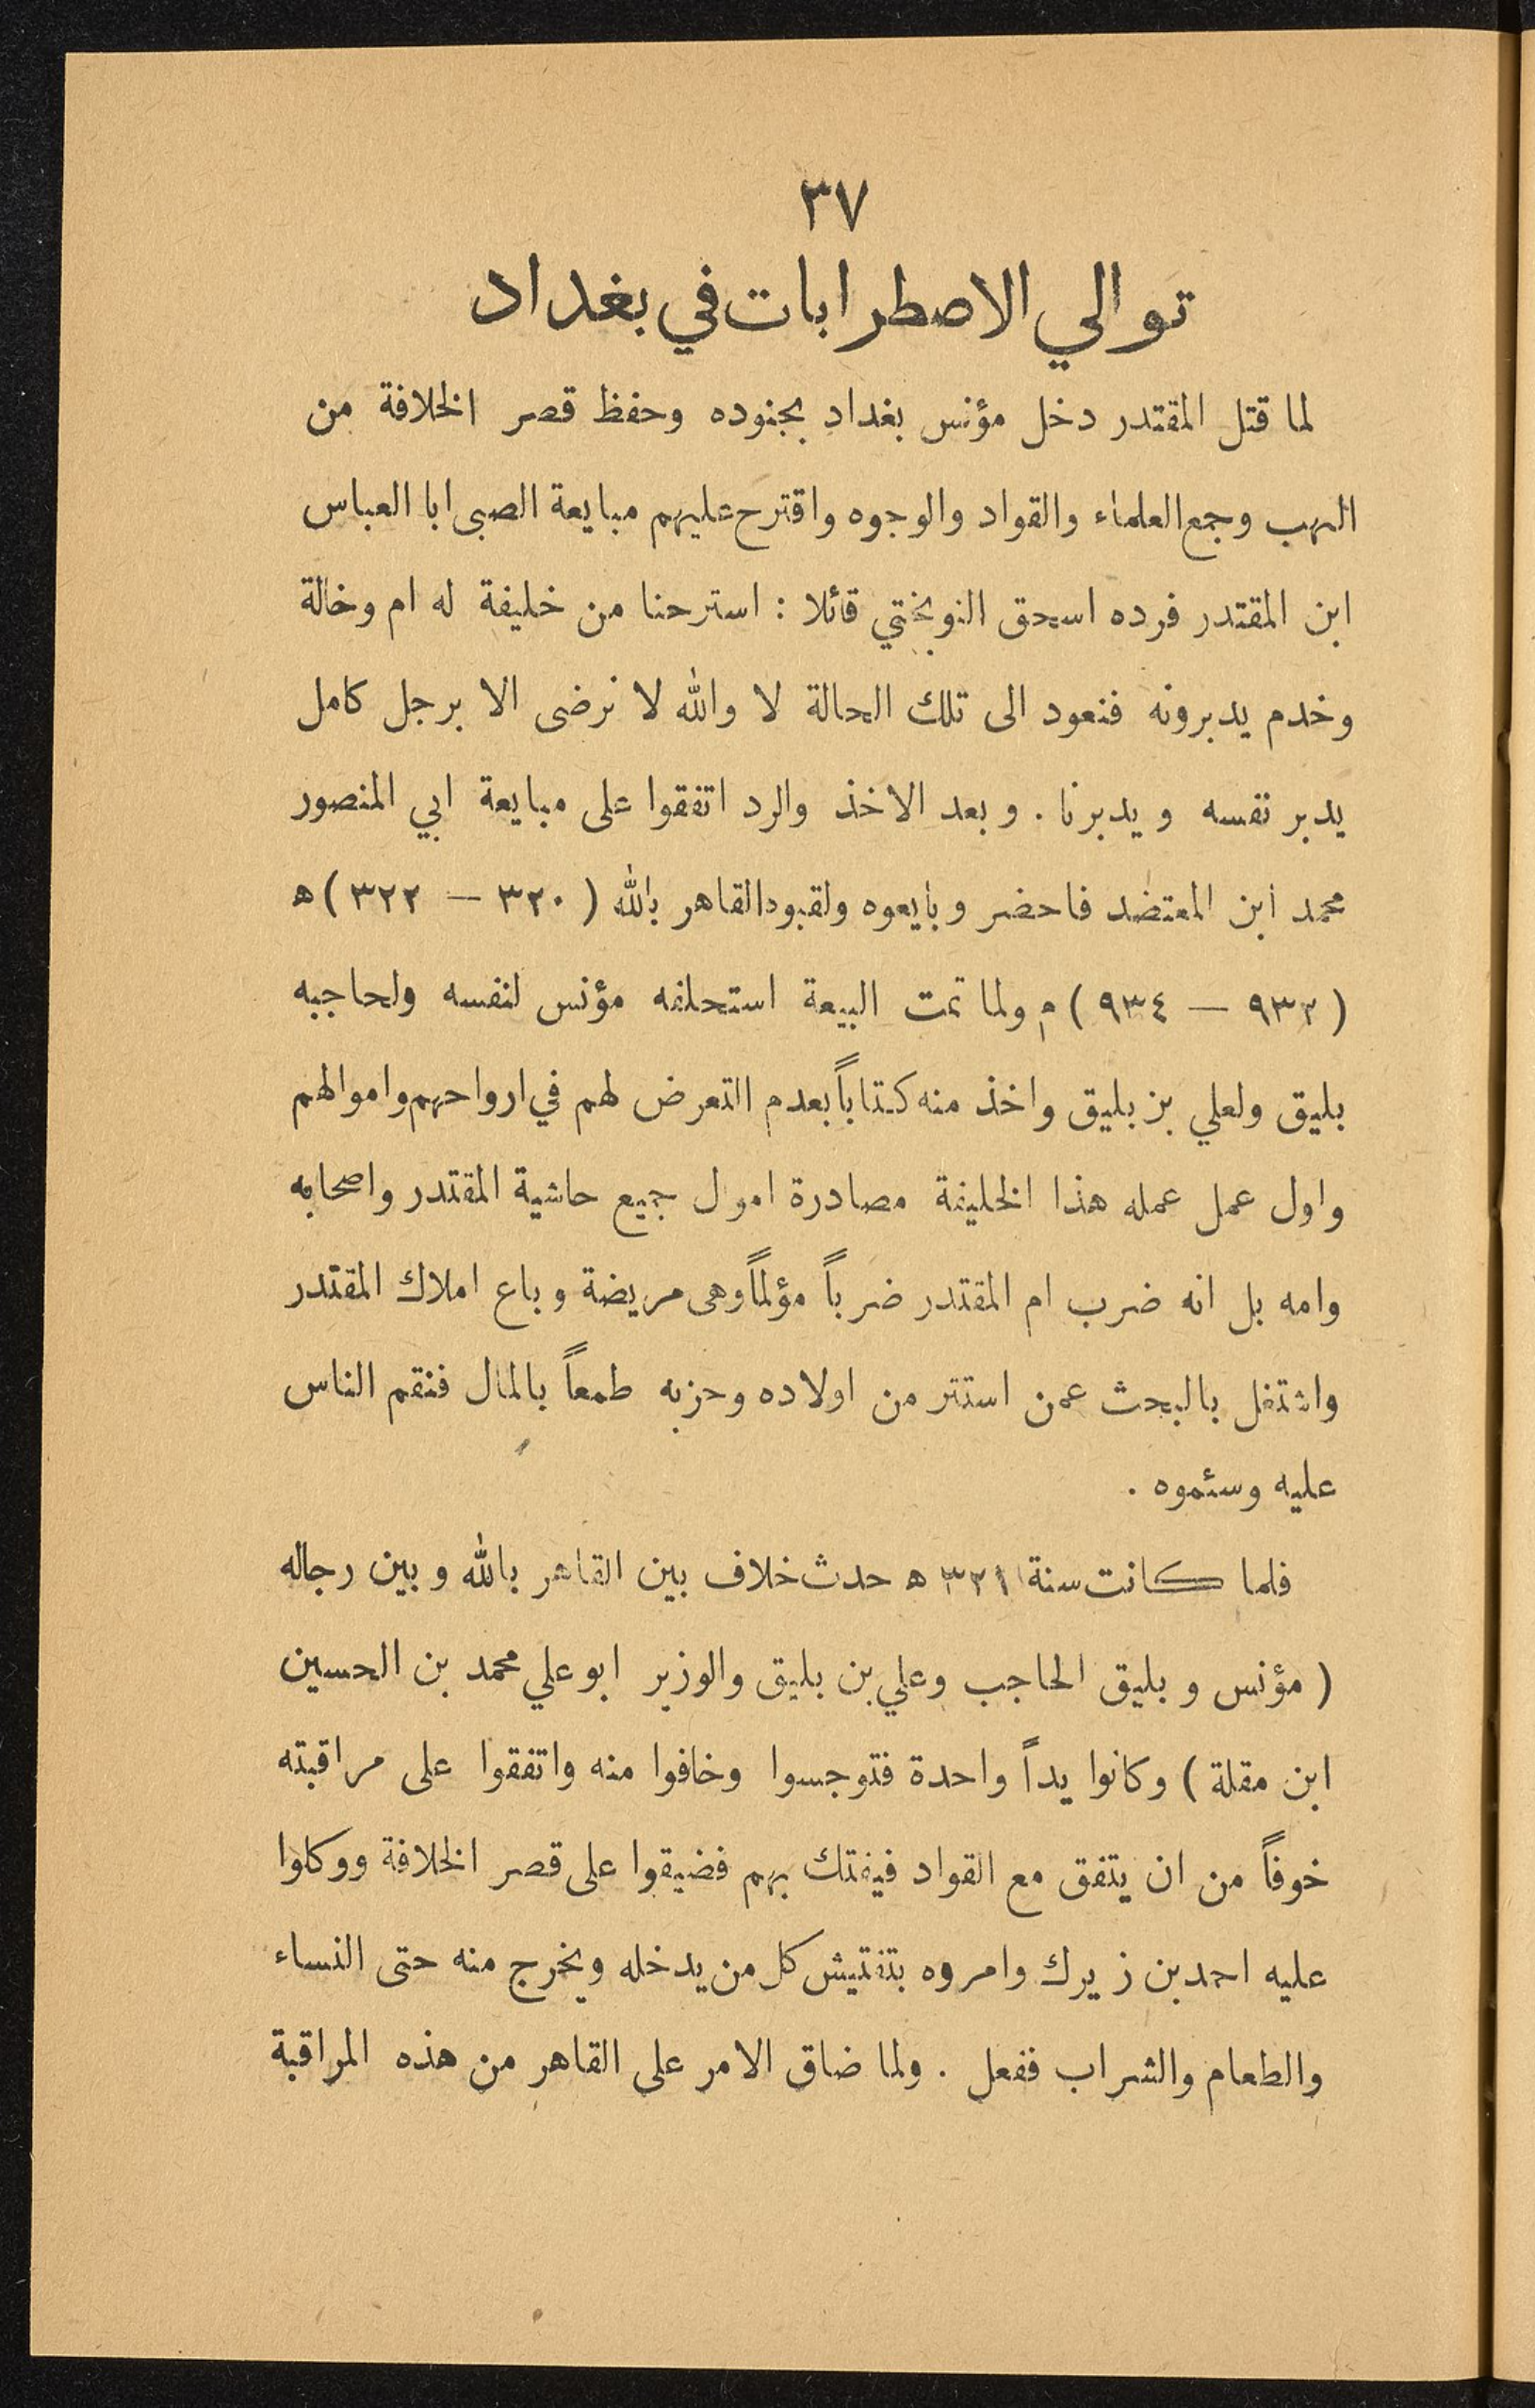 ٣٧
توالي الاصطرابات في بغداد
لما قتل المقتدر دخل مؤنس بغداد بجنوده وحفظ قصر الخلافة من
النهب وجمع العلماء والقواد والوجوه واقترح عليهم مبايعة الصبى ابا العباس
ابن المقتدر فرده اسحق النوبختي قائلا : استرحنا من خليفة له ام وخالة
وخدم يدبرونه فنعود الى تلك الحالة لا والله لا نرضى الا برجل كامل
يدبر نفسه ويدبرنا . وبعد الاخذ والرد اتفقوا على مبايعة ابي المنصور
محمد ابن المعتضد فاحضر وبايعوه ولقبوه القاهر بالله ( ٣٢٠ — ٣٢٢ ) ه
( ٩٣٢ — ٩٣٤ ) م ولما تمت البيعة استحلفه مؤنس لنفسه ولحاجبه
بليق ولعلي بن بليق واخذ منه كتاباً بعدم التعرض لهم في ارواحهم واموالهم
واول عمل عمله هذا الخليفة مصادرة امول جميع حاشية المقتدر واصحابه
وامه بل انه ضرب ام المقتدر ضرباً مؤلماً وهى مريضة وباع املاك المقتدر
واشتغل بالبحث عمن استتر من اولاده وحزبه طمعاً بالمال فنقم الناس
عليه وسئموه .
فلما كانت سنة ٣٢١ ه حدث خلاف بين القاهر بالله وبين رجاله
( مؤنس وبليق الحاجب وعلي بن بليق والوزير ابو علي محمد بن الحسين
ابن مقلة ) وكانوا يداً واحدة فتوجسوا وخافوا منه واتفقوا على مراقبته
خوفاً من ان يتفق مع القواد فيفتك بهم فضيقوا على قصر الخلافة ووكلوا
عليه احمد بن زيرك وامروه بتفتيش كل من يدخله ويخرج منه حتى النساء
والطعام والشراب ففعل . ولما ضاق الامر على القاهر من هذه المراقبة